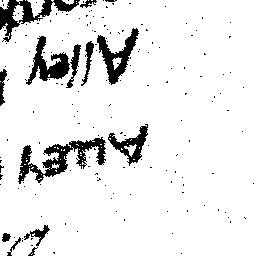 ALLEY
Alley